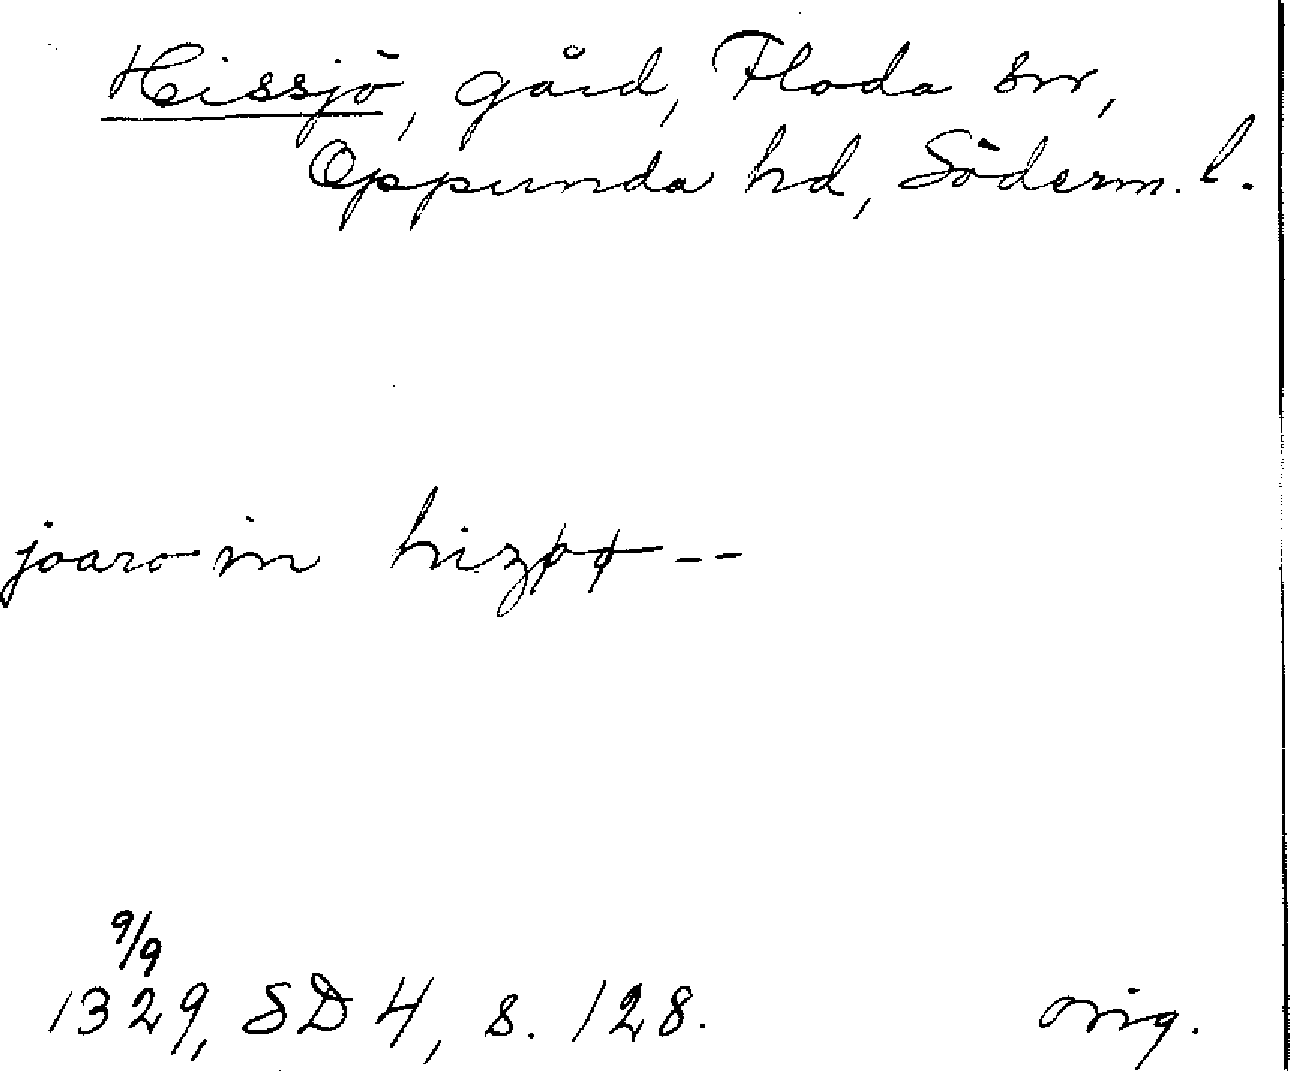 Hissjö, gård, Floda sn,
Oppunda hd, Söderm. l.
joaro in hizøø--
9/9
1329, SD 4, s. 128. orig.